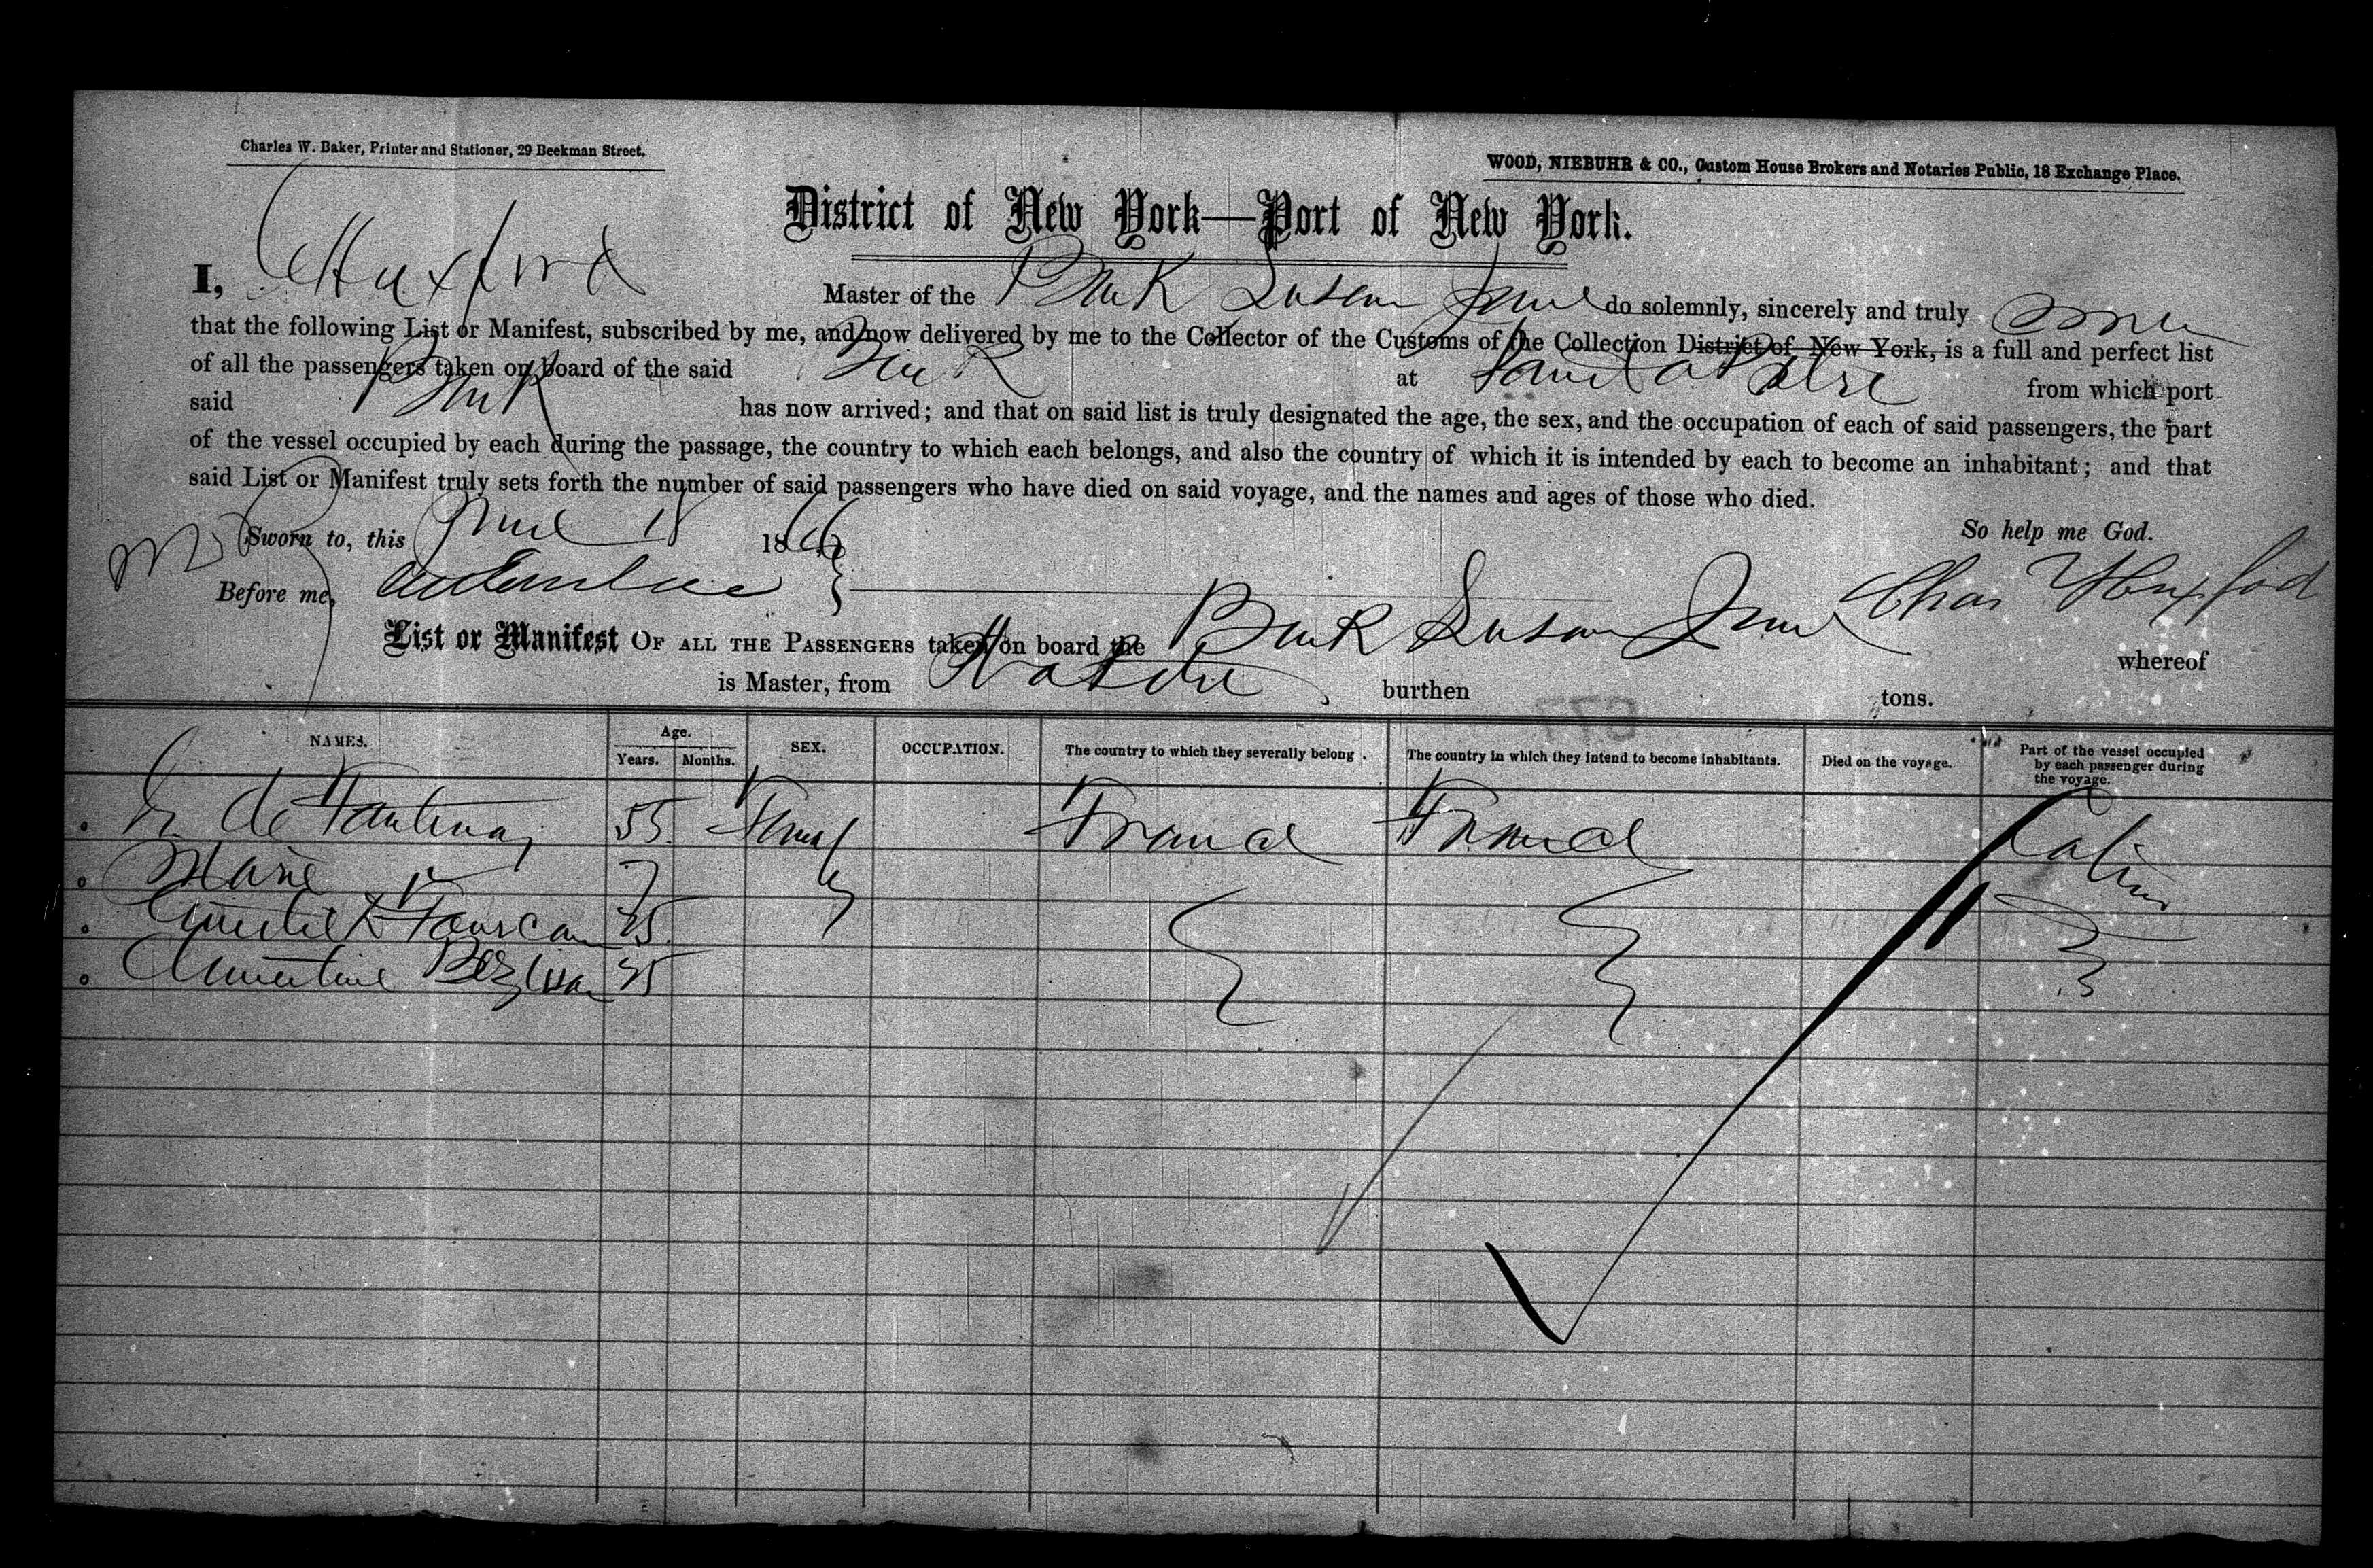 Charles W. Baker, Printer and Stationer, 29 Beekman Street.
WOOD, NIEBUHR & CO., Custom House Brokers and Notaries Public, 18 Exchange Place.
District of New York—Port of New York.
I, C Huxford Master of the Bark Susan Jane do solemnly, sincerely and truly swear
that the following List or Manifest, subscribed by me, and now delivered by me to the Collector of the Customs of the Collection District of New York, is a full and perfect list
of all the passengers taken on board of the said Bark at from which port
said Bark has now arrived; and that on said list is truly designated the age, the sex, and the occupation of each of said passengers, the part
of the vessel occupied by each during the passage, the country to which each belongs, and also the country of which it is intended by each to become an inhabitant; and that
said List or Manifest truly sets forth the number of said passengers who have died on said voyage, and the names and ages of those who died.
Sworn to, this June 18 1866 So help me God.
Before me, Chas Huxford
List or Manifest OF ALL THE PASSENGERS taken on board the Bark Susan Jane whereof
is Master, from burthen tons.
677
NAMES. Age. Years. Months. SEX. OCCUPATION. The country to which they severally belong. The country in which they intend to become inhabitants. Died on the voyage. Part of the vessel occupied by each passenger during the voyage.
de Fontenay 55 Female France France Cabin
Marie 7
25
Clementine 25